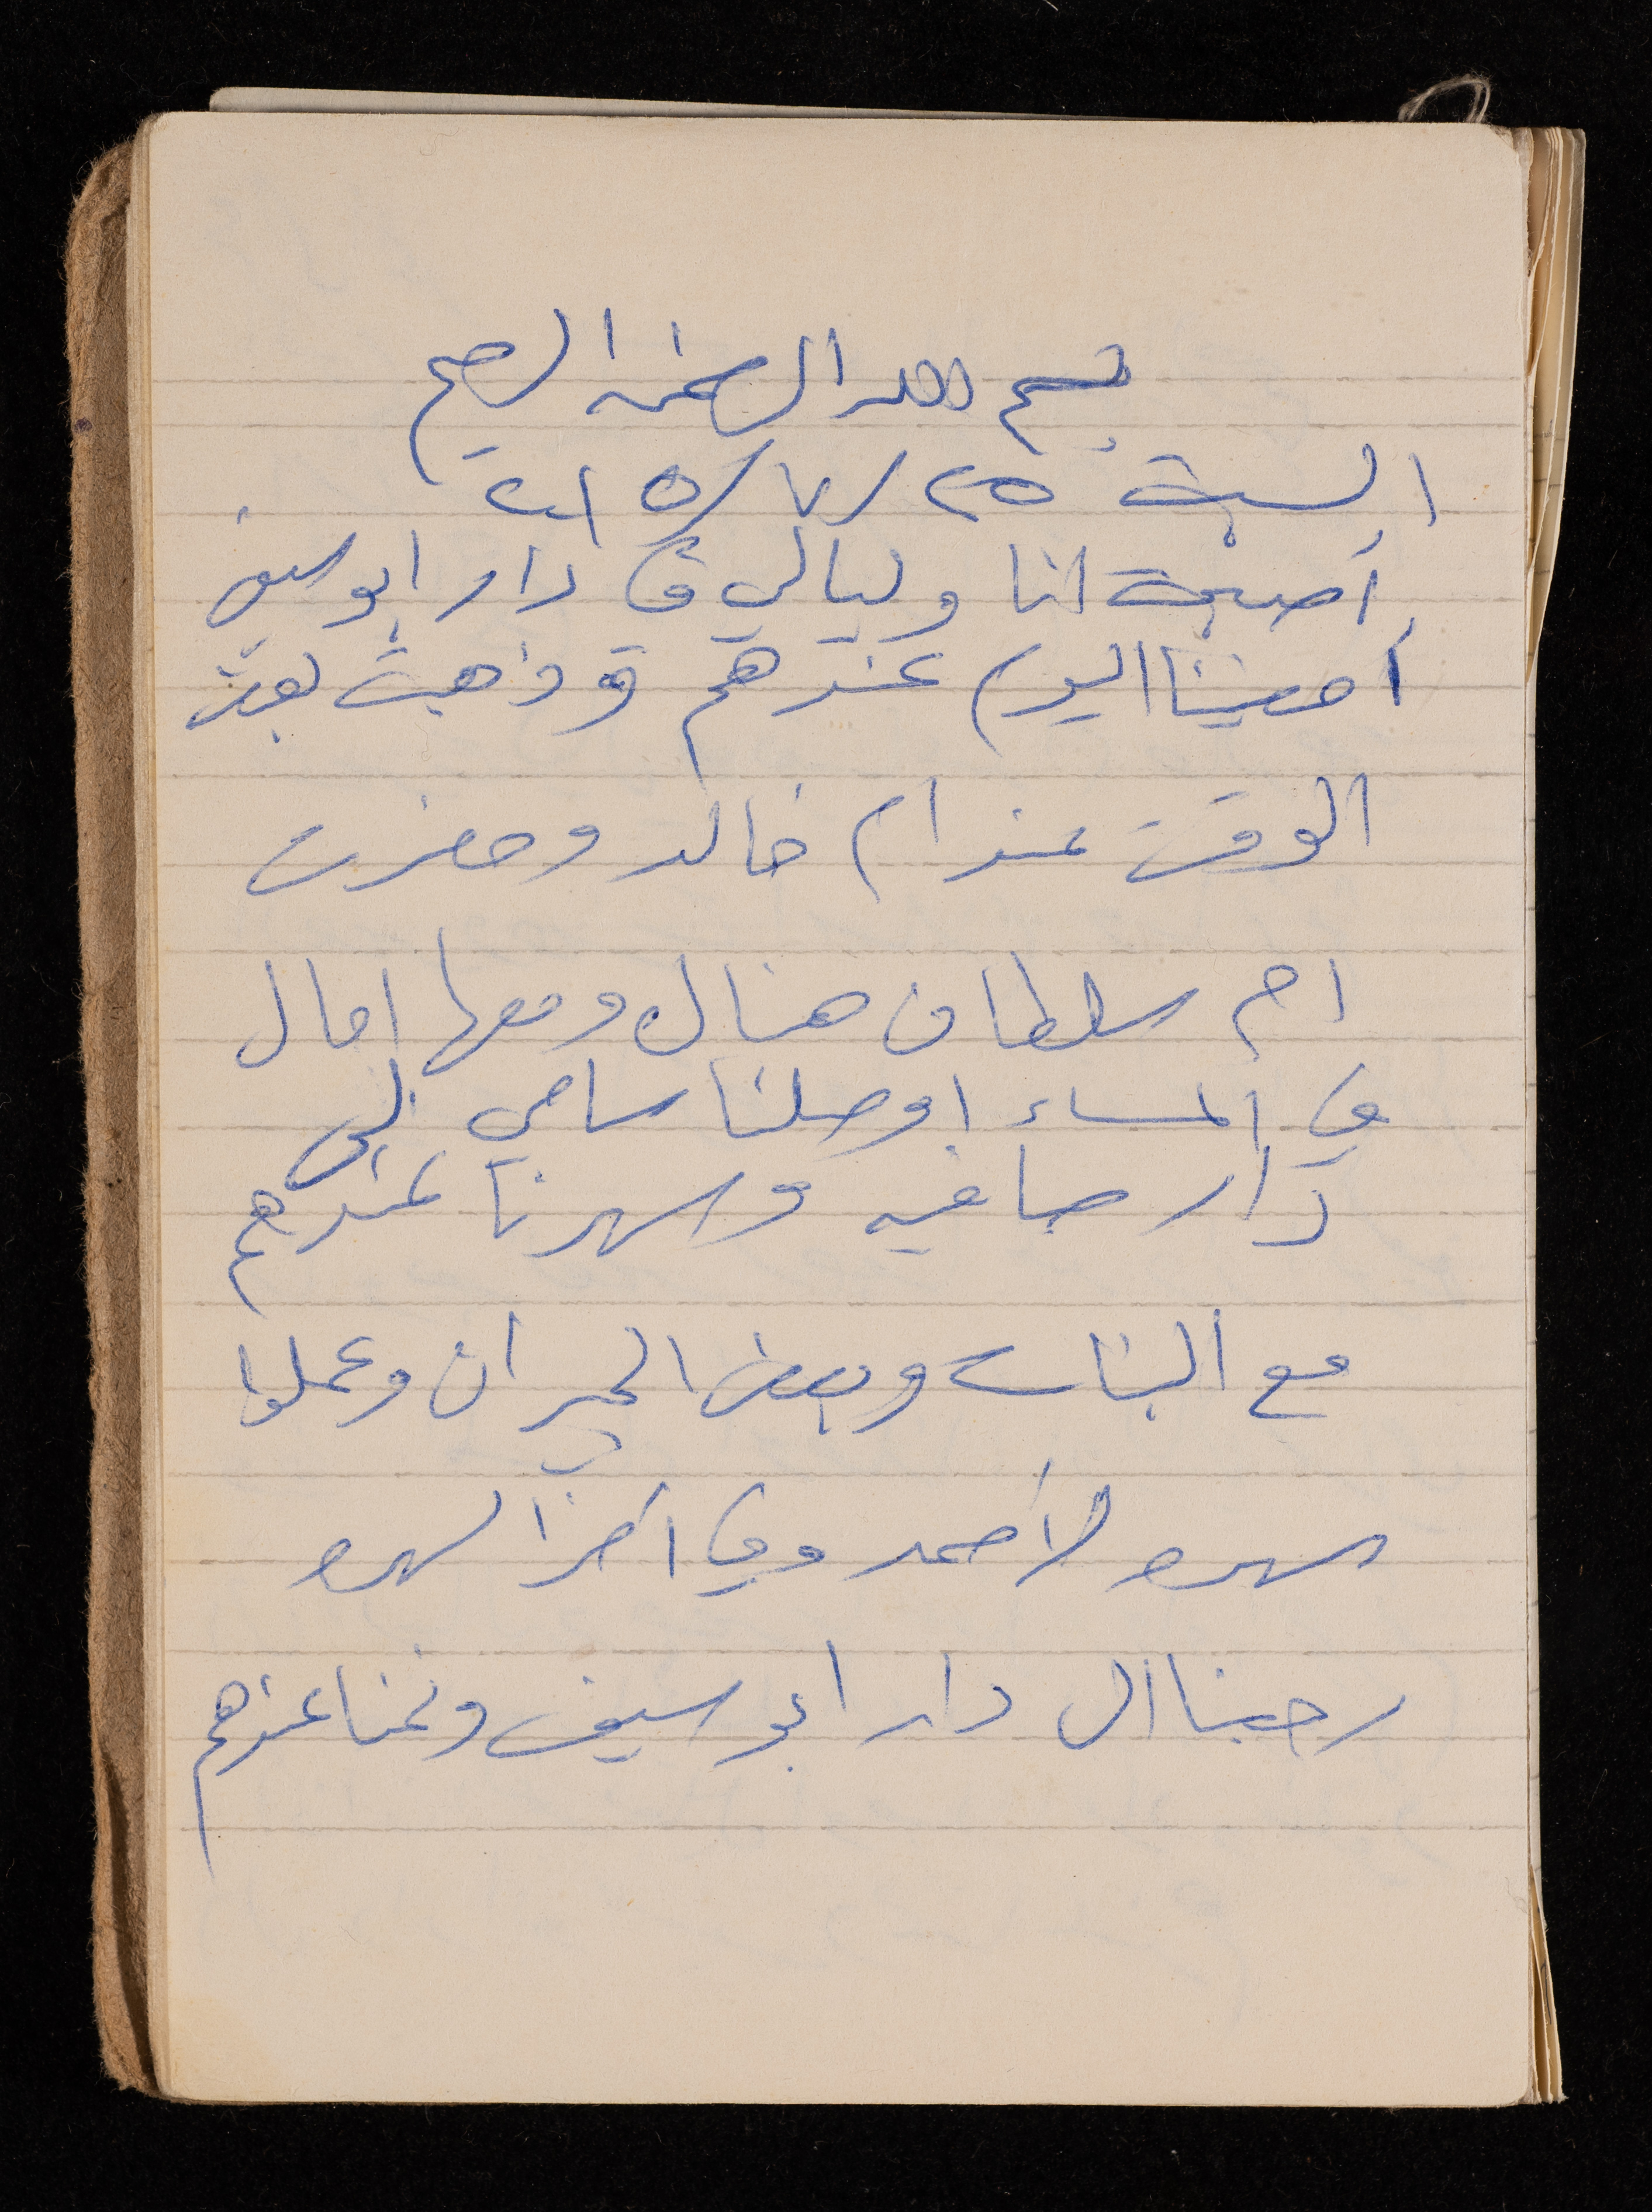 بسم الله الرحمن الرحيم
السبت ٢٥ / ٧ /
أصبحت انا وليالي في دار ابو سيف
أمضينا اليوم عندهم وذهبت بعض
الوقت عند ام خالد وحضرت
ام سلطان هناك ومعها امال
في المساء اوصلنا سامي الى
دار صافيه وسهرنا عندهم
مع البنات وبعض الجيران وعملوا
سهره لأحمد وفي اخر السهره
رجعنا الى دار ابو سيف ونمنا عندهم